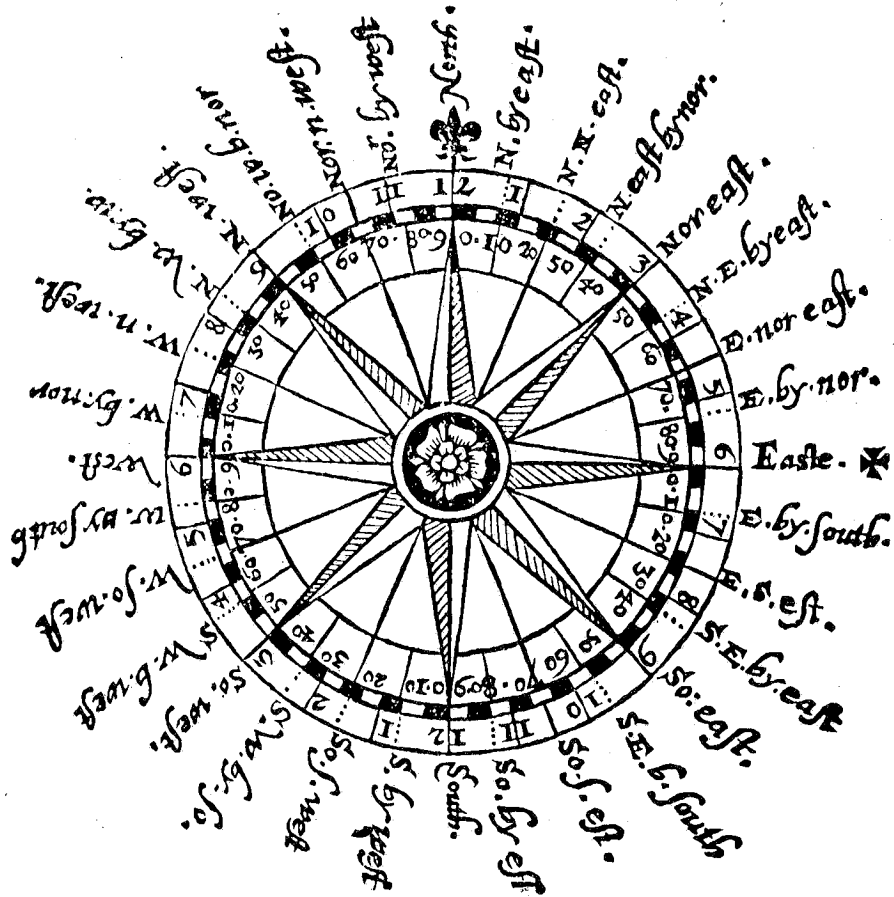 North.
N. by eaſt.
N. N. eaſt.
N. eaſt by nor.
Nor eaſt.
N. E. by eaſt.
E. nor eaſt.
E. by. nor.
Eaſte.
E. by. ſouth.
E. s. eſt.
S. E. by. eaſt
So: eaſt.
S E. b. ſouth
So. ſ. eſt.
So. by eſt
South.
S. by weſt
So. ſ. weſt
S. w. by. ſo.
So. weſt.
S w. b. weſt
W. ſo. weſt
w. by ſouth
Weſt.
W. by. nor
W. n. weſt.
N. w. by. w.
N. weſt.
No. w. b. nor
Nor. n. weſt.
Nor. by weſt
12
1
2
3
4
5
6
7
8
9
10
11
12
1
2
3
4
5
6
7
8
9
10
11
90.10
20
30
40
50
60
70.
80
90.10.20
30
40
50
60
70
80
90.10
20
30
40
50
60
70
80
90
10
20
30
40
50
60
70.
80